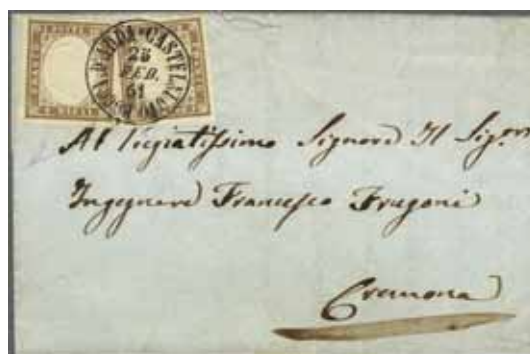 CASTELNUOVO D'ARDA
23
FEB.
61
Al Pregiatissimo Signore Il Sig.re
Ingegnere Francesco Fregoni
Cremona